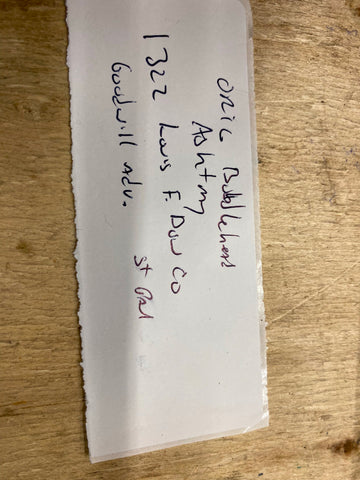 Orig Bobblehead
Ashtray
1322 Louis F. Dow Co
St Paul
Goodwill Adv.